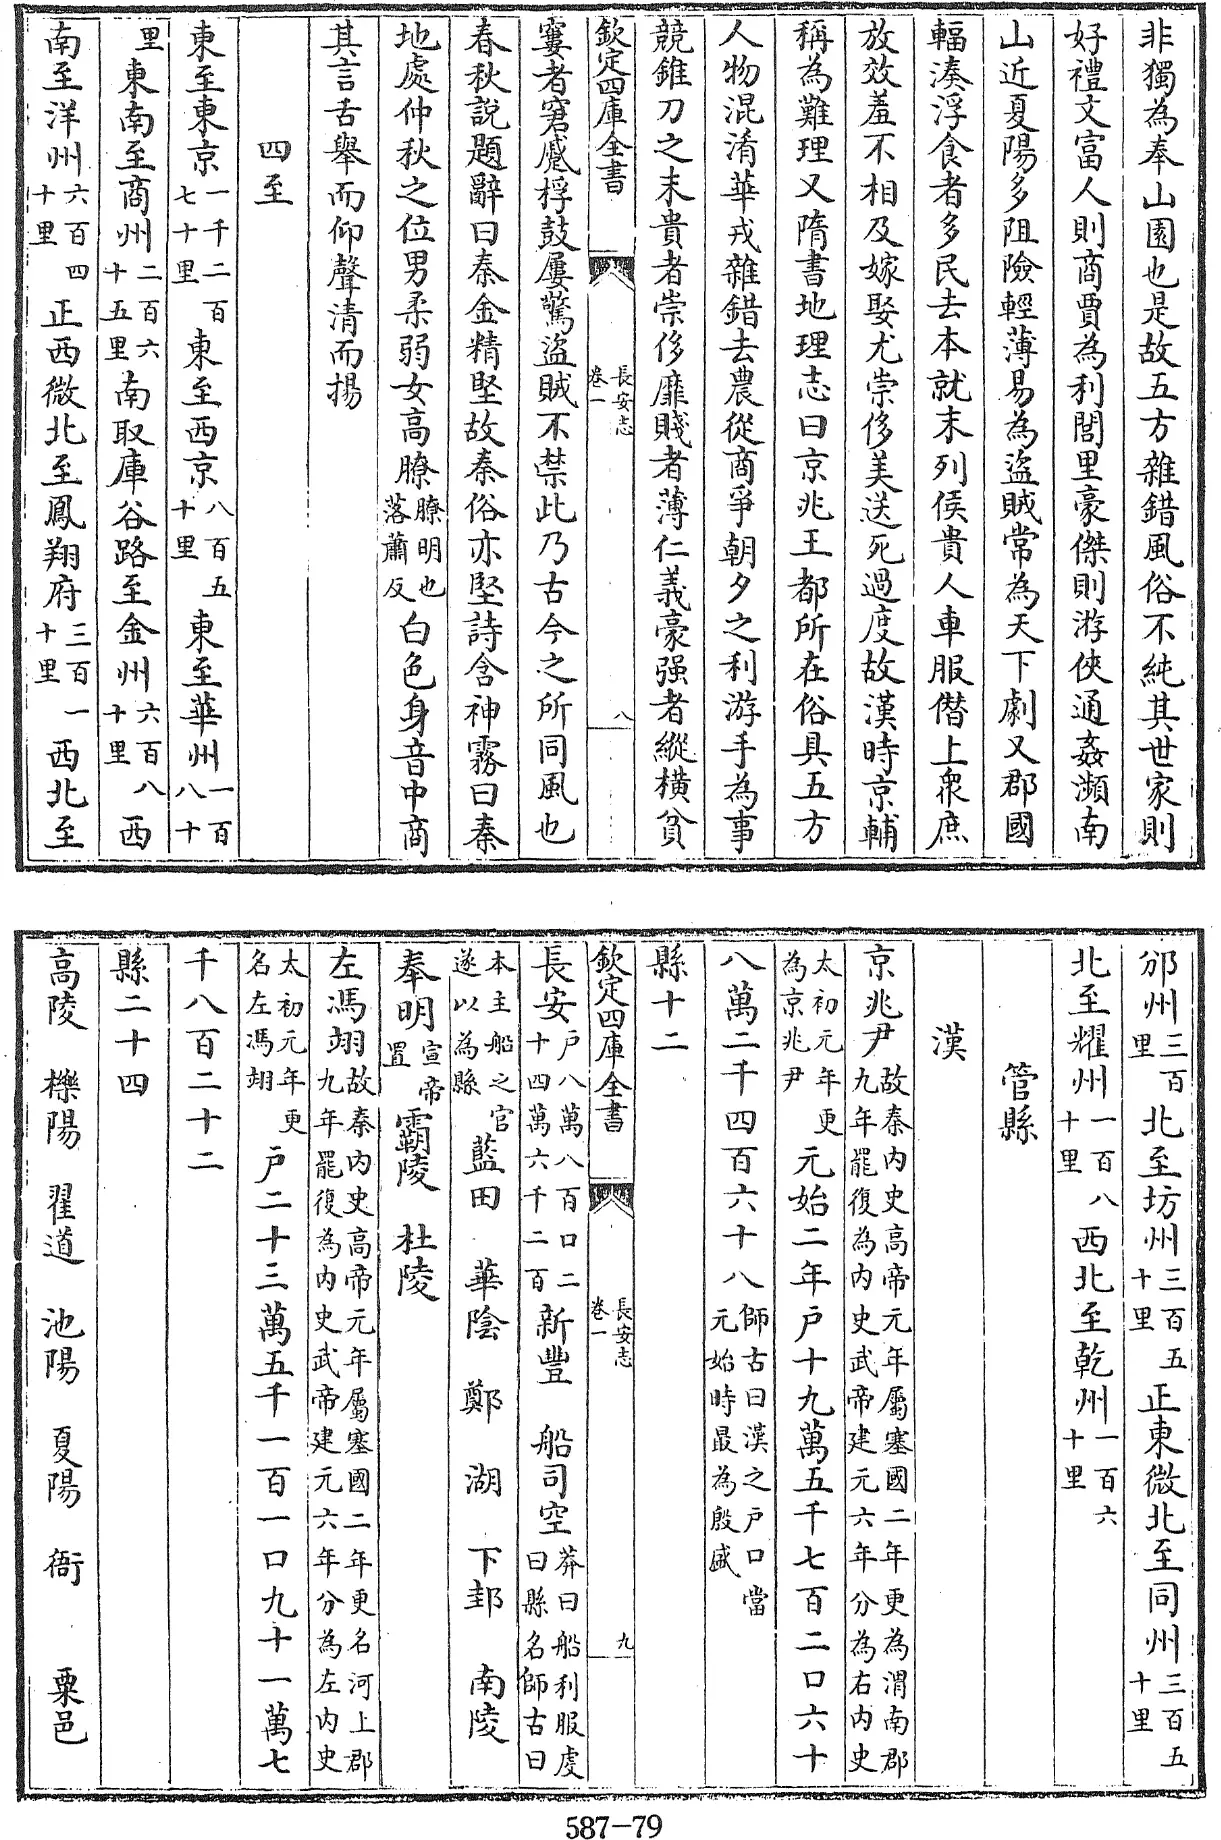 非獨為奉山園也是故五方雜錯風俗不純其世家則
好禮文富人則商賈為利閭里豪傑則游俠通姦瀕南
山近夏陽多阻險輕薄易為盜賊常為天下劇又郡國
輻湊浮食者多民去本就末列侯貴人車服僭上衆庶
放效羞不相及嫁娶尤崇侈美送死過度故漢時京輔
稱為難理又隋書地理志曰京兆王都所在俗具五方
人物混淆華戎雜錯去農從商爭朝夕之利游手為事
競錐刀之末貴者崇侈靡賤者薄仁義豪强者縱橫貧
欽定四庫全書 長安志 卷一 八
窶者窘蹙桴鼓屢驚盜賊不禁此乃古今之所同風也
春秋說題辭曰秦金精堅故秦俗亦堅詩含神霧曰秦
地處仲秋之位男柔弱女高膫膫明也落蕭反白色身音中商
其言舌舉而仰聲清而揚
四至
東至東京一千二百七十里東至西京八百五十里東至華州一百八十
里東南至商州二百六十五里南取庫谷路至金州六百八十里西
南至洋州六百四十里正西微北至鳳翔府三百一十里西北至
邠州三百里北至坊州三百五十里正東微北至同州三百五十里
北至耀州一百八十里西北至乾州一百六十里
管縣
漢
京兆尹故秦内史高帝元年屬塞國二年更為渭南郡九年罷復為内史武帝建元六年分為右内史
太初元年更為京兆尹元始二年户十九萬五千七百二口六十
八萬二千四百六十八師古曰漢之户口當元始時最為殷盛
縣十二
欽定四庫全書 長安志 卷一 九
長安户八萬八百口二十四萬六千二百新豐 船司空莽曰船利服虔曰縣名師古曰
本主船之官遂以為縣藍田 華陰 鄭 湖 下邽 南陵
奉明宣帝置霸陵 杜陵
左馮翊故秦内史高帝元年屬塞國二年更名河上郡九年罷復為内史武帝建元六年分為左内史
太初元年更名左馮翊户二十三萬五千一百一口九十一萬七
千八百二十二
縣二十四
高陵 櫟陽 翟道 池陽 夏陽 衙 粟邑
587-79